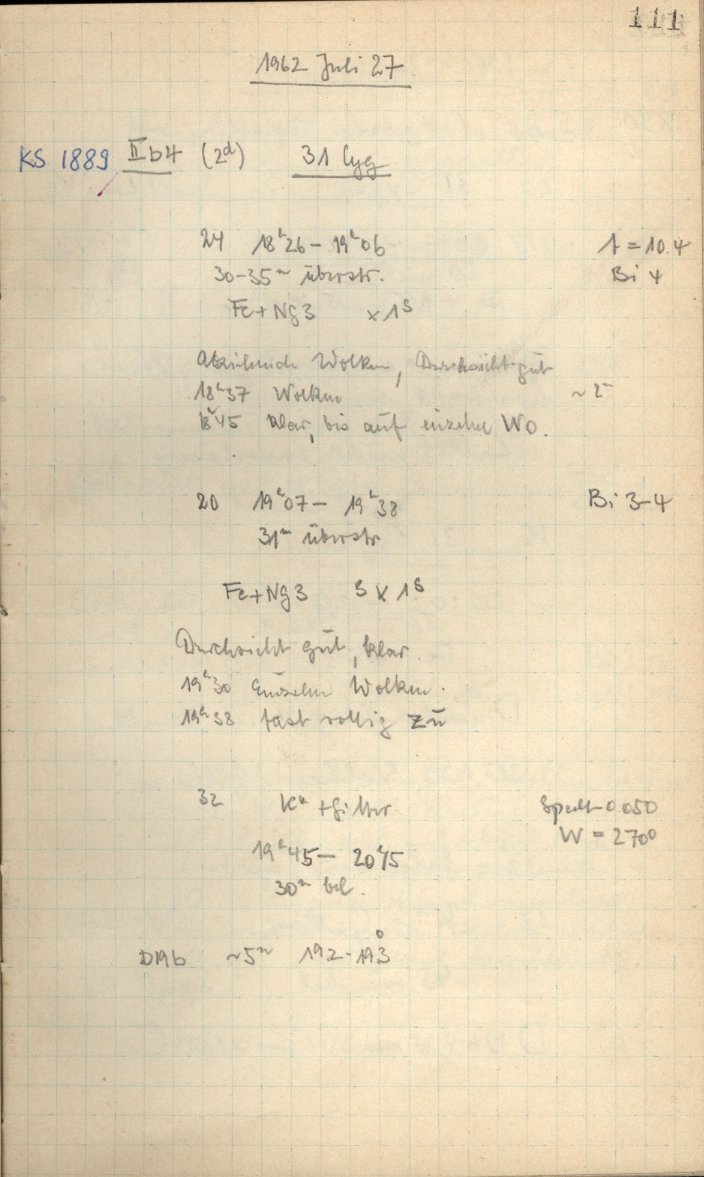 111
1962 Juli 27
KS 1889 IIb4 (2d) 31 Cyg
24 18h26 – 19h06 t = 10.4
30-35m überstr. Bi 4
Fe + Ng3 × 1s
Abziehende Wolken, Durchsicht gut
18h37 Wolken ~ 2m
18h45 klar, bis auf einzelne Wo.
20 19h07 – 19h38 Bi 3-4
31m überstr
Fe + Ng3 3 × 1s
Durchsicht gut, klar.
19h30 Einzelne Wolken.
19h38 fast völlig zu
32 + Gitter Spalt 0.050
W = 2700
19h45 – 20h15
30m bel.
D19b ~5m 19.2 - 19.3°